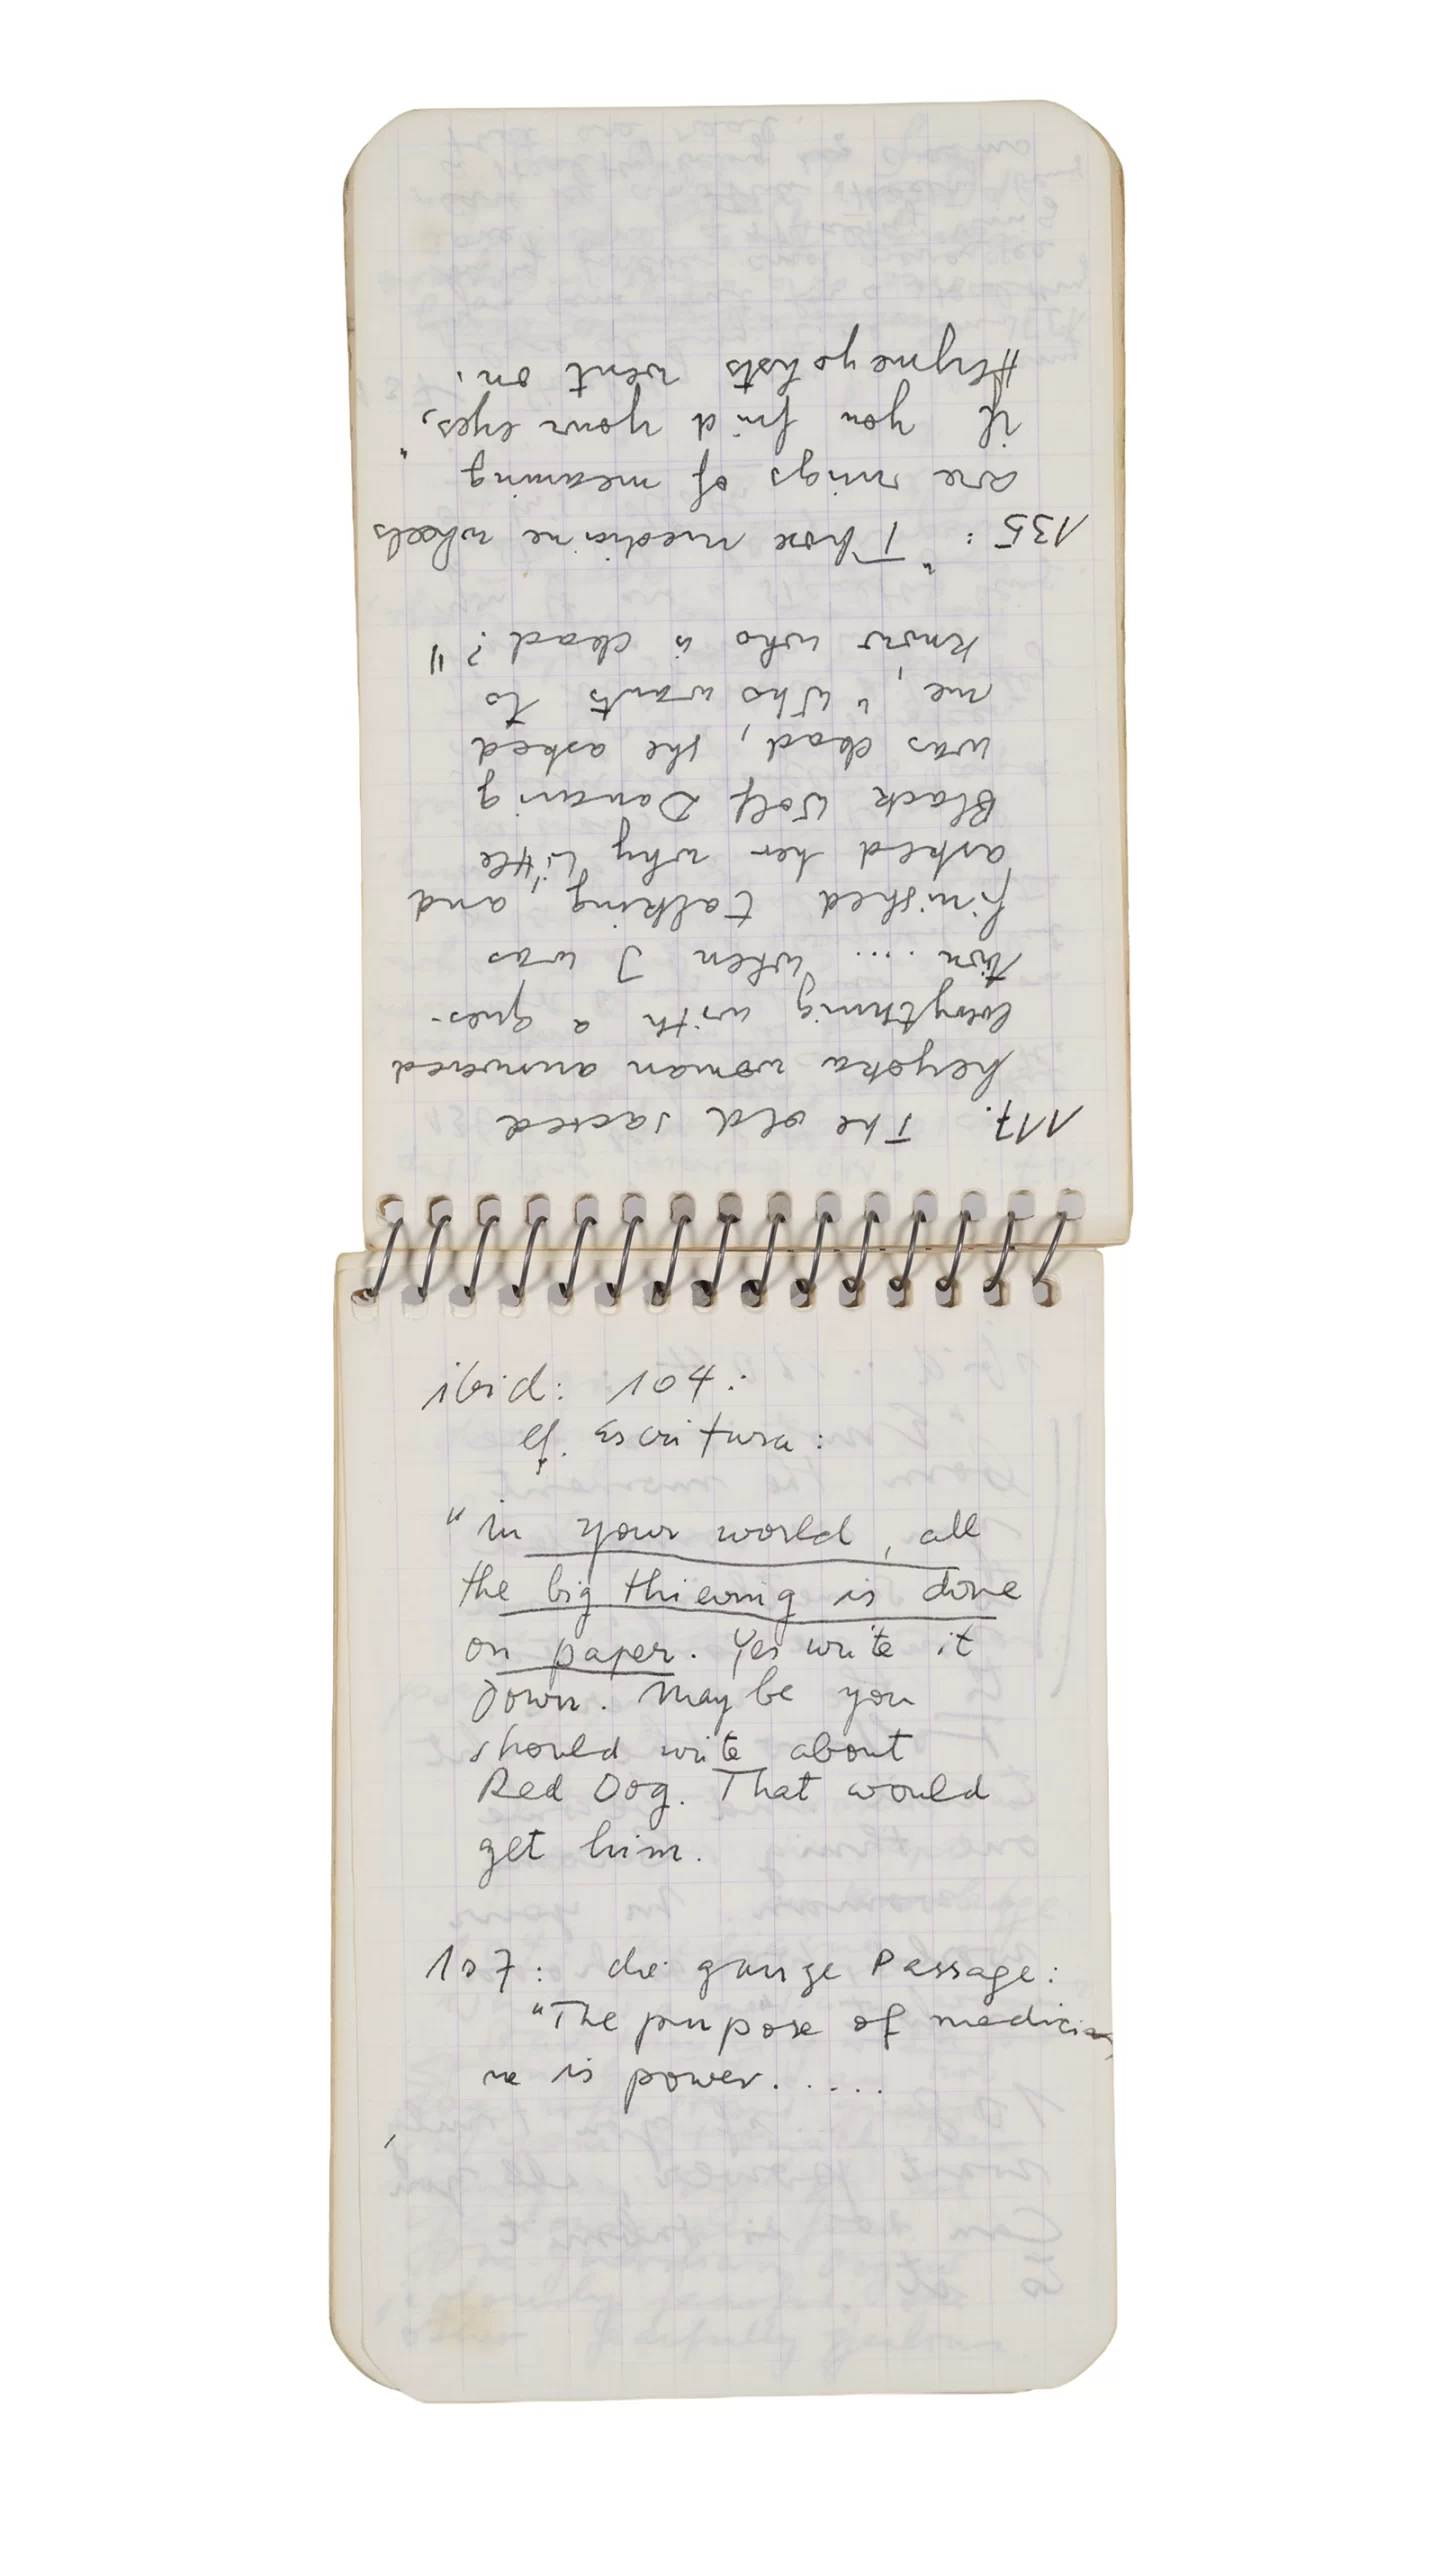 117. The old sacred
heyoka woman answered
everything with a ques-
tion .... "when I was
finished talking, and
asked her why Little
Black Wolf Dancing
was dead, she asked
me, "Who wants to
know who is dead?"
135: "Those medicine wheels
are rings of meaning
if you find your eyes,"
Heymeyohsts went on.
ibid: 104:
cf. Escritura:
"in your world, all
the big thieving is done
on paper. Yes write it
Down. May be you
should write about
Red Dog. That would
get him.
107: die ganze Passage:
"The purpose of medici
ne is power.....